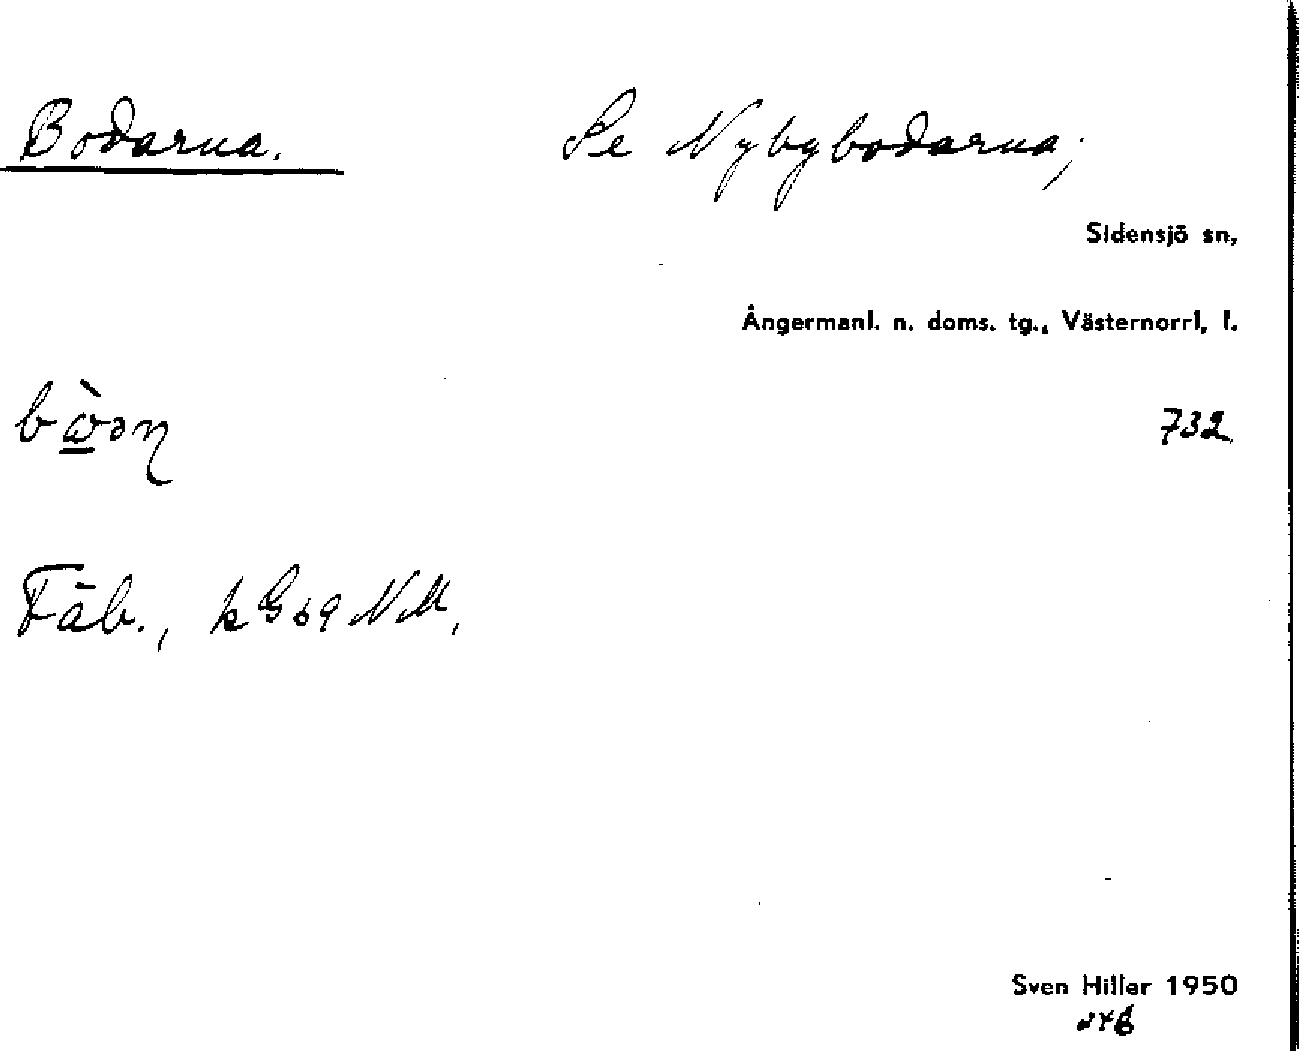 Bodarna. Se Nybybodarna;
Sidensjö sn,
Ångermanl. n. doms. tg., Västernorrl. l.
732
Fäb., k G 69 NM,
Sven Hillar 1950